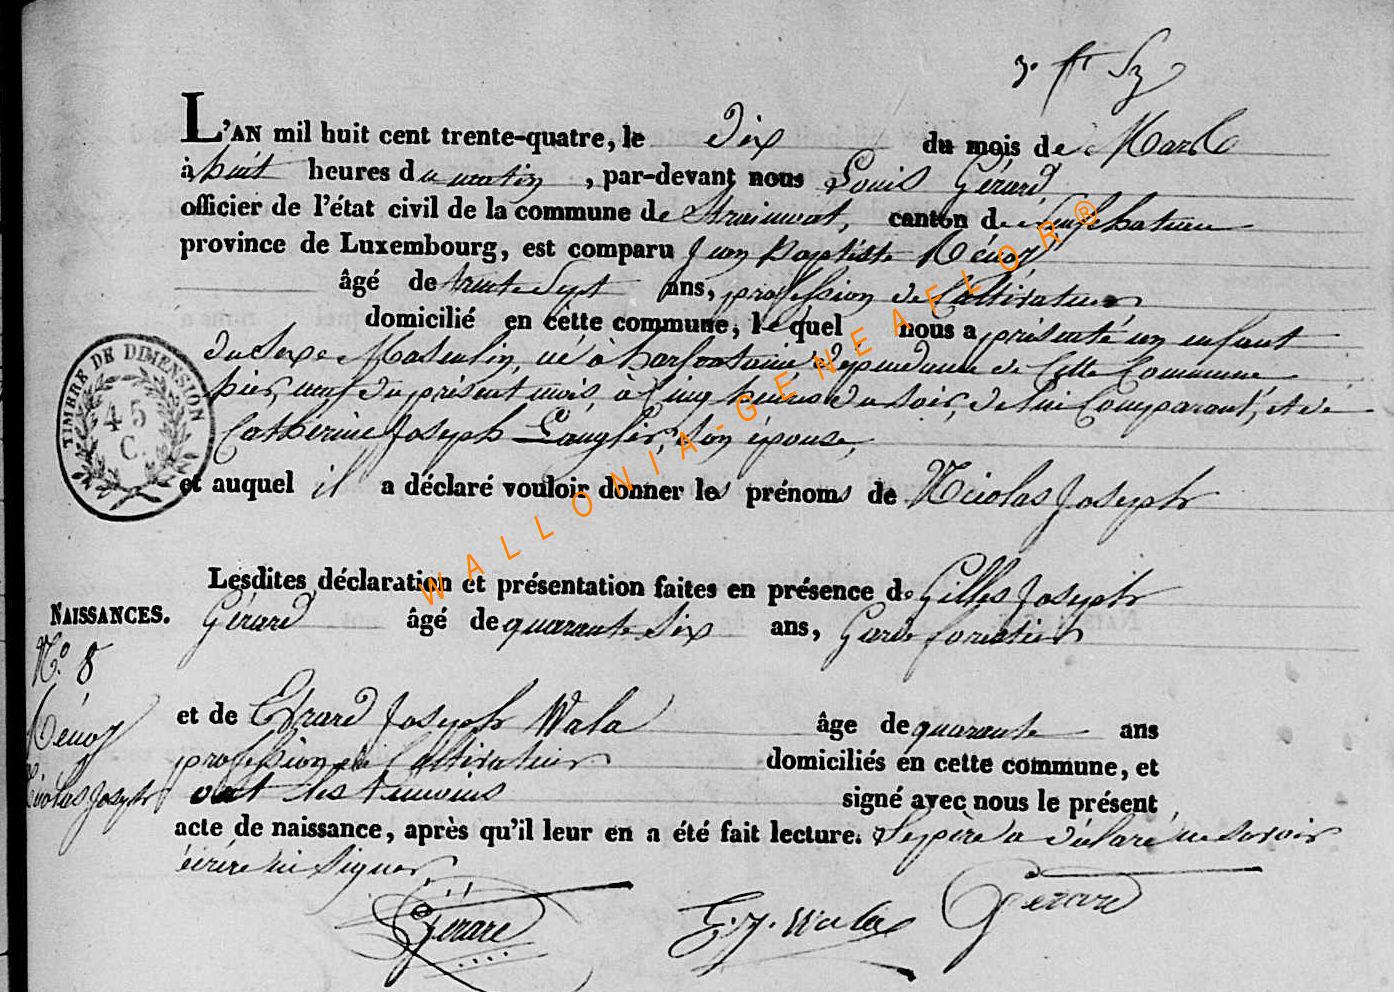 L'AN mil huit cent trente-quatre, le Dix du mois de Mars
à huit heures du matin, par-devant nous Louis Gérard
officier de l'état civil de la commune de Straimont, canton de Neufchateau
province de Luxembourg, est comparu Jean Baptiste Ménoy
âgé de trente Sept ans, profession de Cultivateur
domicilié en cette commune, le quel nous a présenté un enfant
du Sexe Masculin, né à harfontaine dépendance de Cette Commune
hier, neuf du présent mois, à Cinq heures du soir, de lui Comparant, et de
Catherine Joseph Laugler, son épouse,
et auquel il a déclaré vouloir donner les prénoms de Nicolas Joseph
Lesdites déclaration et présentation faites en présence de Gilles Joseph
NAISSANCES.
Gérard âgé de quarante Six ans, Garde forestier
N.º 8
et de Erard Joseph Wala âge de quarante ans
Ménoy
profession de Cultivateur domiciliés en cette commune, et
Nicolas Joseph
ont les temoins signé avec nous le présent
acte de naissance, après qu'il leur en a été fait lecture. Le père a déclaré ne savoir
écrire ni signer.
Gérard E. J. Wala Gérard
TIMBRE DE DIMENSION
45
C.
WALLONIA-GENEAFLOR®